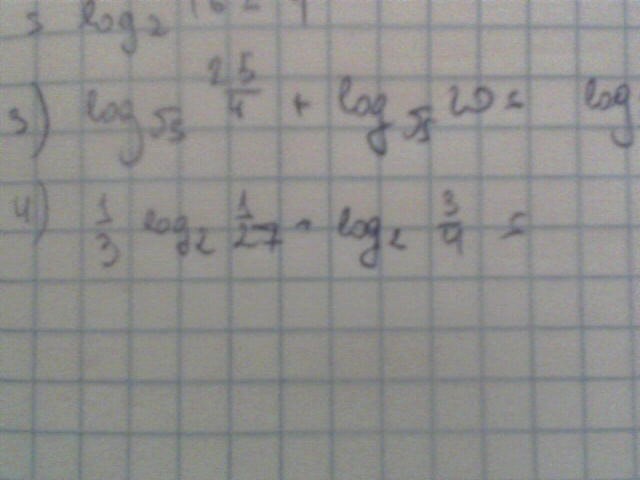 log₂ 16
3) log√5 25/4 + log√5 20 = log
4) 1/3 log₂ 1/27 - log₂ 3/4 =